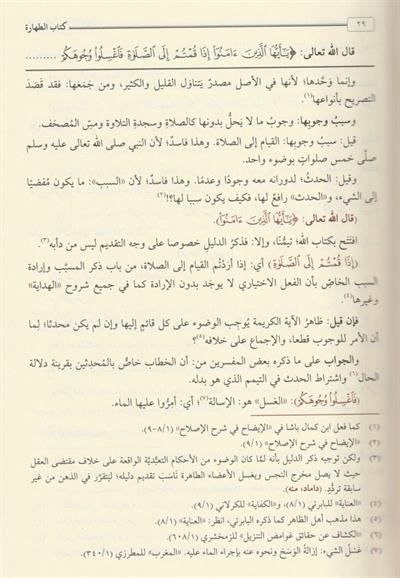 ٢٩ كتاب الطهارة
قال الله تعالى: ﴿يَٰٓأَيُّهَا ٱلَّذِينَ ءَامَنُوٓا۟ إِذَا قُمْتُمْ إِلَى ٱلصَّلَوٰةِ فَٱغْسِلُوا۟ وُجُوهَكُمْ ..........
وإنما وَحَّدها؛ لأنها في الأصل مصدرٌ يَتناول القليل والكثير، ومن جَمَعَها: فقد قَصَدَ
التصريح بأنواعها(١).
وسببُ وجوبها: وجوبُ ما لا يَحلُّ بدونها كالصلاة وسجدةِ التلاوة ومسِّ المصْحَف.
قيل: سببُ وجوبها: القيام إلى الصلاة. وهذا فاسدٌ؛ لأن النبي صلى الله تعالى عليه وسلم
صلَّى خمس صلواتٍ بوضوء واحد.
وقيل: الحدثُ؛ لدورانه معه وجودًا وعدمًا. وهذا فاسدٌ؛ لأن «السبب»: ما يكون مُفضيًا
إلى الشيء، و«الحدث» رافعٌ لها، فكيف يكون سببا لها؟!(٢)
(قال الله تعالى: ﴿يَٰٓأَيُّهَا ٱلَّذِينَ ءَامَنُوٓا۟﴾).
افتتَح بكتاب الله؛ تيمُّنًا، وإلا: فذكرُ الدليل خصوصا على وجه التقديم ليس من دأبه(٣).
﴿إِذَا قُمْتُمْ إِلَى ٱلصَّلَوٰةِ﴾ أي: إذا أردْتُم القيام إلى الصلاة، من باب ذكر المسبَّب وإرادة
السبب الخاصّ بأن الفعل الاختياري لا يوجد بدون الإرادة كما في جميع شروح «الهداية»
وغيرها(٤).
فإن قيل: ظاهرُ الآية الكريمة يُوجِب الوضوء على كل قائمٍ إليها وإن لم يكن محدثا؛ لما
أن الأمر للوجوب قطعا، والإجماع على خلافه(٥)؟
والجواب على ما ذكره بعض المفسرين من: أن الخطاب خاصٌّ بالمُحدِثين بقرينة دلالة
الحال(٦) واشتراط الحدث في التيمم الذي هو بدله.
(﴿فَٱغْسِلُوا۟ وُجُوهَكُمْ﴾): «الغسل» هو: الإسالة(٧)؛ أي: أمِرُّوا عليها الماء.
(١) كما فعل ابن كمال باشا في «الإيضاح في شرح الإصلاح» (٨/١-٩).
(٢) «الإيضاح في شرح الإصلاح» (٩/١).
(٣) ولكن توجيه ذكر الدليل بأنه لمَّا كان الوضوء من الأحكام التعبُّديَّة الواقعة على خلاف مقتضى العقل
حيث لا يصل مخرج النجس ويغسل الأعضاء الطاهرة نَاسَبَ تقديم دليله؛ ليتقرّر في الذهن من غير
سابقة تردُّدٍ. (داماد، منه).
(٤) «العناية» للبابرتي (٨/١)، و«الكفاية» للكرلاني (٩/١).
(٥) هذا مذهب أهل الظاهر كما ذكره البابرتي، انظر: «العناية» (٨/١).
(٦) «الكشاف عن حقائق غوامض التنزيل» للزمخشري (٦٠٨/١).
(٧) غَسْلُ الشيء: إزالةُ الوَسَخ ونحوه عنه بإجراء الماء عليه. «المغرب» للمطرزي (٣٤٠/١).